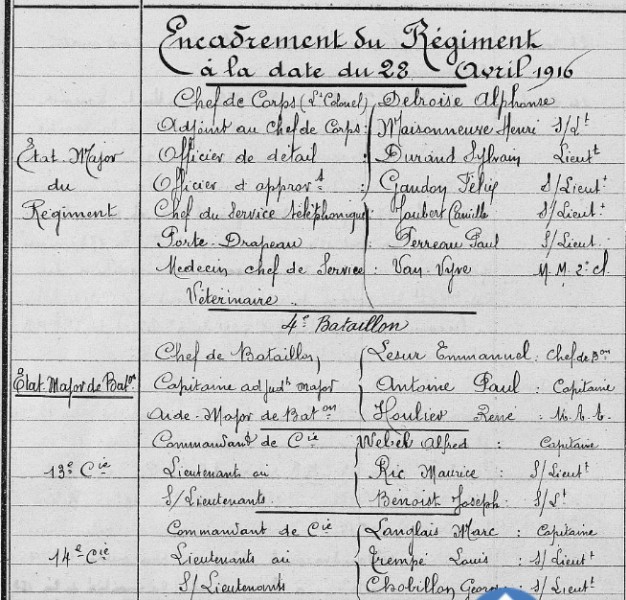 Encadrement du Régiment
à la date du 28 Avril 1916
Chef de Corps (Lt Colonel) Delroise Alphonse
Adjoint au chef de Corps : Maisonneuve Henri S/Lt
État-Major Officier de détail : Durand Sylvain Lieutt
du Officier d'approvt : Gaudon Félix S/Lieutt
Régiment Chef du Service téléphonique : Joubert Camille S/Lieutt
Porte-Drapeau : Perreau Paul S/Lieut.
Medecin chef de Service : Van-Vyve M.M. 2e cl.
Vétérinaire ..
4e Bataillon
Chef de Bataillon Lesur Emmanuel : Chef de Bon
État-Major de Baton Capitaine adjudt major Antoine Paul : Capitaine
Aide-Major de Baton Houlier René :
Commandant de Cie Webel Alfred : Capitaine
13e Cie Lieutenant ou Ric Maurice : S/Lieutt
S/Lieutenants Benoist Joseph. S/Lt
Commandant de Cie Langlais Marc : Capitaine
14e Cie Lieutenants ou Trempé Louis : S/Lieutt
S/Lieutenants Chobillon Georges : S/Lieutt